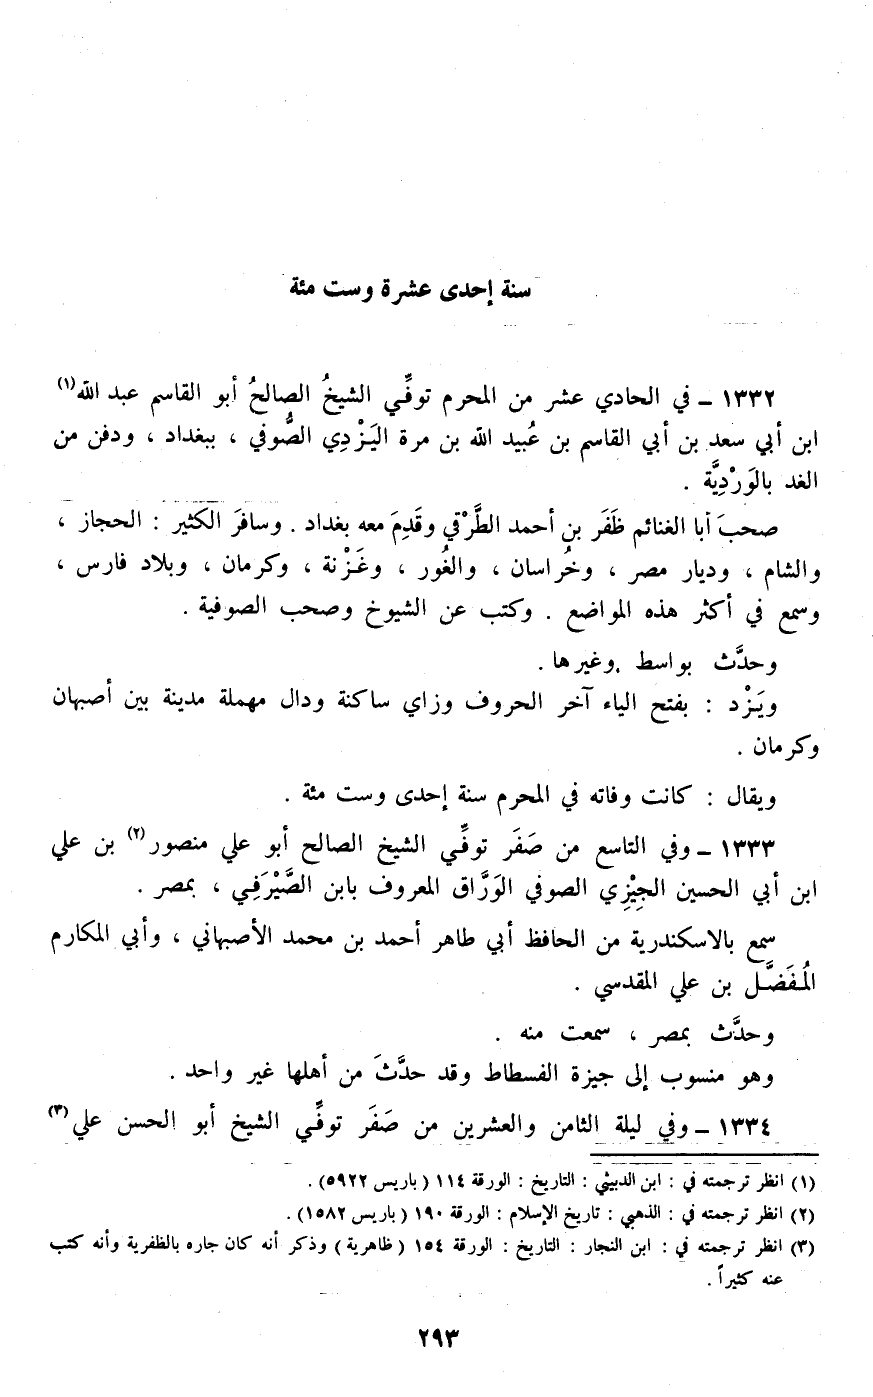 سنة إحدى عشرة وست مئة
١٣٣٢ ـ في الحادي عشر من المحرم توفِّي الشيخُ الصالحُ أبو القاسم عبد الله(١)
ابن أبي سعد بن أبي القاسم بن عُبيد الله بن مرة اليَزْدِي الصُّوفي ، ببغداد ، ودفن من
الغد بالوَرْدِيَّة .
صحبَ أبا الغنائم ظَفَر بن أحمد الطَّرْقي وقَدِمَ معه بغداد . وسافرَ الكثير : الحجاز ،
والشام ، وديار مصر ، وخُراسان ، والغُور ، وغَزْنة ، وكرمان ، وبلاد فارس ،
وسمع في أكثر هذه المواضع . وكتب عن الشيوخ وصحب الصوفية .
وحدَّث بواسط وغيرها .
ويَزْد : بفتح الياء آخر الحروف وزاي ساكنة ودال مهملة مدينة بين أصبهان
وكرمان .
ويقال : كانت وفاته في المحرم سنة إحدى وست مئة .
١٣٣٣ ـ وفي التاسع من صَفَر توفِّي الشيخ الصالح أبو علي منصور(٢) بن علي
ابن أبي الحسين الجِيْزِي الصوفي الوَرَّاق المعروف بابن الصَّيْرَفِي ، بمصر .
سمع بالاسكندرية من الحافظ أبي طاهر أحمد بن محمد الأصبهاني ، وأبي المكارم
المُفَضَّل بن علي المقدسي .
وحدَّث بمصر ، سمعت منه .
وهو منسوب إلى جيزة الفسطاط وقد حدَّثَ من أهلها غير واحد .
١٣٣٤ ـ وفي ليلة الثامن والعشرين من صَفَر توفِّي الشيخ أبو الحسن علي(٣)
(١) انظر ترجمته في : ابن الدبيثي : التاريخ : الورقة ١١٤ ( باريس ٥٩٢٢) .
(٢) انظر ترجمته في : الذهبي : تاريخ الإسلام : الورقة ١٩٠ ( باريس ١٥٨٢) .
(٣) انظر ترجمته في : ابن النجار : التاريخ : الورقة ١٥٤ ( ظاهرية ) وذكر أنه كان جاره بالظفرية وأنه كتب
عنه كثيراً .
٢٩٣